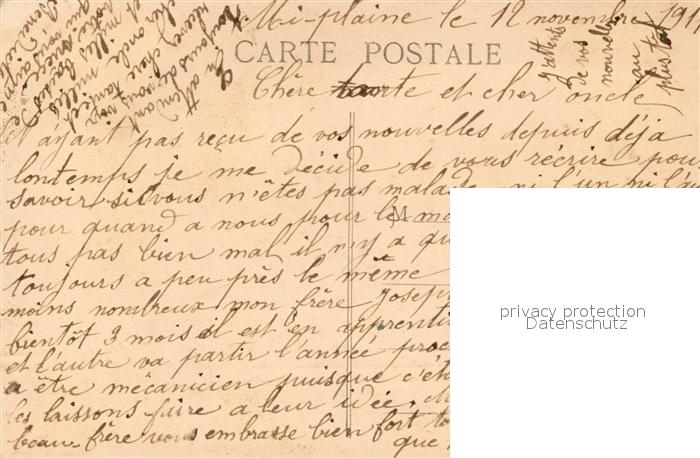 Mi-plaine le 12 novembre 191
CARTE POSTALE
Chère tante et cher oncle
ayant pas reçu de vos nouvelles depuis déja
lontemps je me décide de vous récrire pour
savoir si vous n'êtes pas malade ni l'un ni l'a
pour quand a nous pour le mo
tous pas bien mal il n'y a qu
toujours a peu près le même
moins nombreux mon frère Joseph
bientôt 3 mois il est en apprenti
et l'autre va partir l'année proc
a être mécanicien puisque c'ét
les laissons faire a leur idée.
beau-frère vous embrasse bien fort
que
M
J'attends
de vos
nouvelles
au
plus tôt
En attendant
toujours de vous
recevez chère tante
cher oncle
milles
privacy protection
Datenschutz